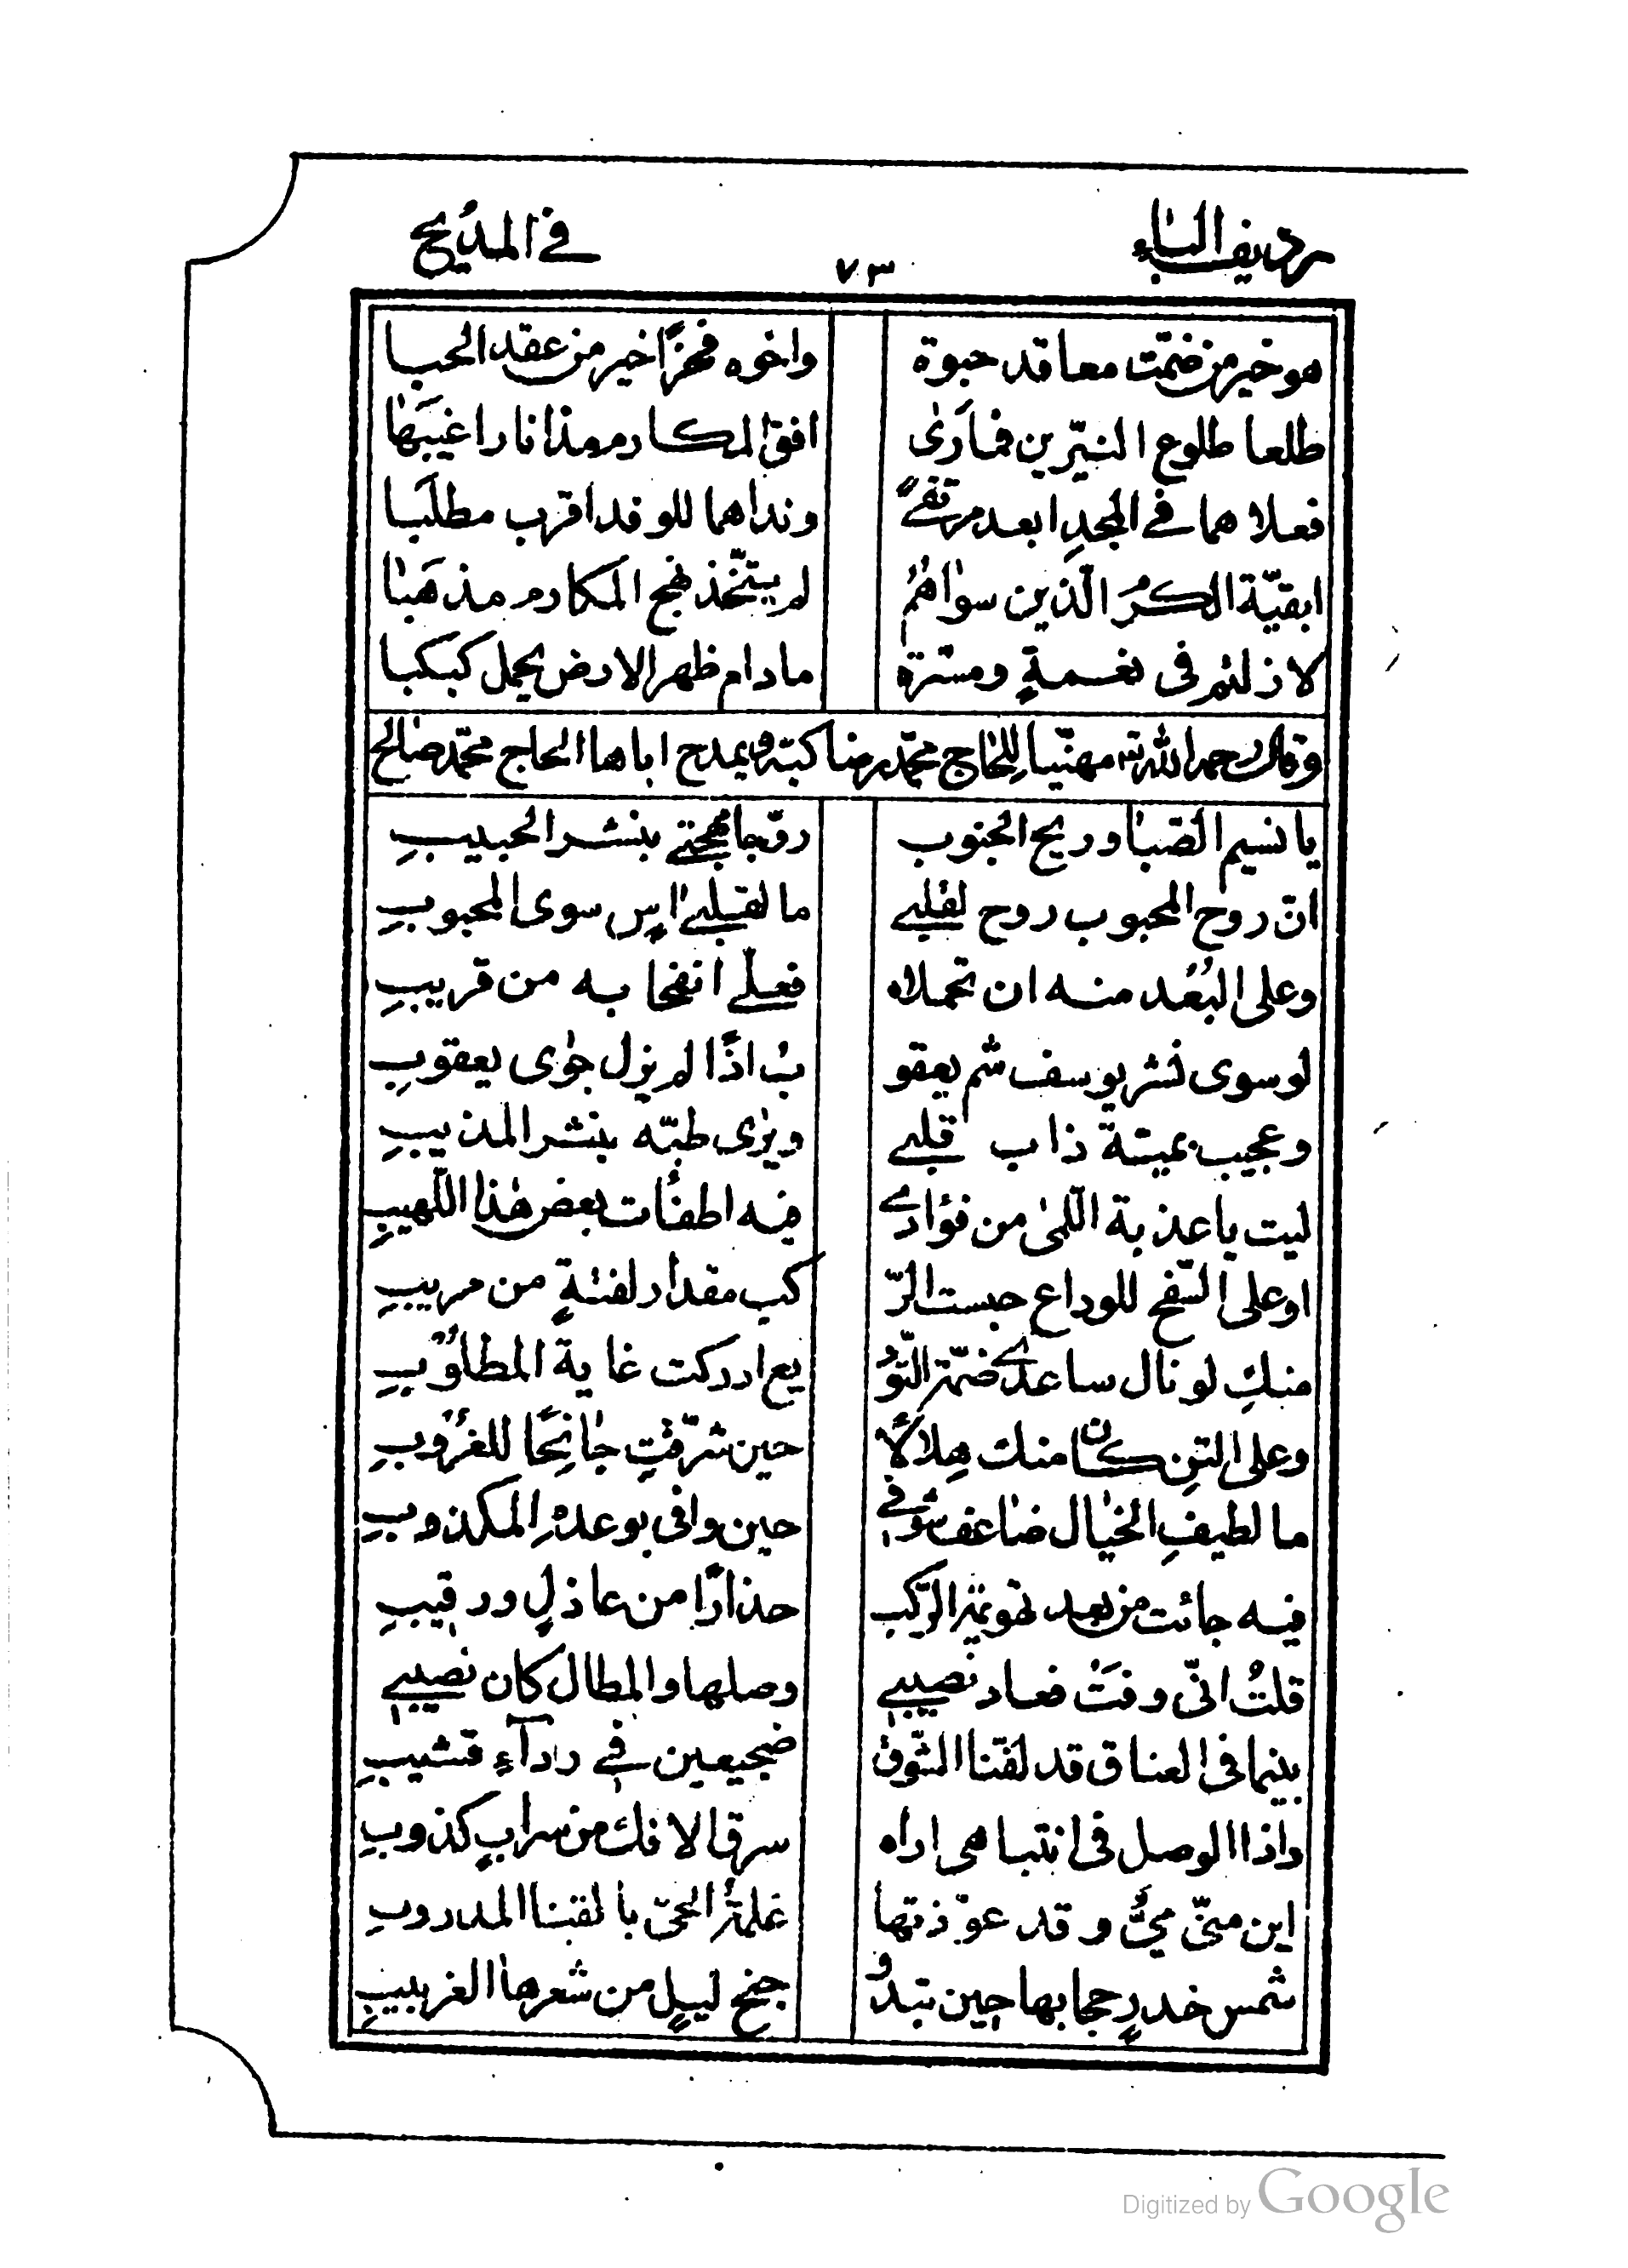 رديف الباء ٧٣ في المديح
هو خير من ضمّت معاقد حبوة واخوه فخرًا خير من عقد الحبا
طلعا طلوع النيّرين فما أرى افق المكارم مذ انارا غيهبا
فعلاهما في المجدِ ابعد مرتقىً ونداهما للوفد اقرب مطلَبا
ابقيّة الكرَمُ الّذين سواهُمُ لم يتّخذ نهج المكارم مذهَبا
لا زلتم في نعمةٍ ومسّرة ما دام ظهر الارض يحمل كبكبا
وقال رحمه الله مهنّيا للحاج محمّد رضا كبّه ويمدح اباها الحاج محمّد صالح
يا نسيم الصّبا وريح الجنوب روّجا مهجتي بنشر الحبيبِ
انّ روح المحبوب روح لقلبي ما لقلبي اسٍ سوى المحبوبِ
وعلى البُعُد منه ان تحملاه فعلّي انفحا به من قريبِ
لو سوى نشر يوسف شم يعقو بُ اذًا لم يزل جوى يعقوبِ
وعجيب بميتة ذاب قلبي ويرى طبّه بنشر المذيبِ
ليت ياعذبة اللّمى من فؤادي فيه اطفأت بعض هذا اللّهيبِ
او على السّفح للوداع حبست الرّ كب مقدار لفتةٍ من مريبِ
منكِ لو نال ساعدي ضمّة التّوْد يع ادركت غاية المطلوْبِ
وعلى المتن كان منك هِلالًا حين شرّقتِ جانِحًا للغرُوبِ
ما لطيفِ الخيال ضاعف شوقي حين وافى بوعدهِ المكذوبِ
فيه جائت من بعد تهويمة الركب حذارًا من عاذلٍ ورقيبِ
قلتُ انّى وفتَ فعاد نصيبي وصلها والمطال كان نصيبي
بينما في العناق قد لفّنا الشّوق ضجيعين في رداءِ قشيبِ
واذا الوصل في انتباهى اراه سرق الافك من سرابٍ كذوبِ
اين منّى ميٌّ وقد عوّذتها غلمةُ الحىّ بالقبنا المدروبِ
شمس خدرٍ حجابها حين تبدُو جنح ليلٍ من شعرها الغربيبِ
Digitized by Google